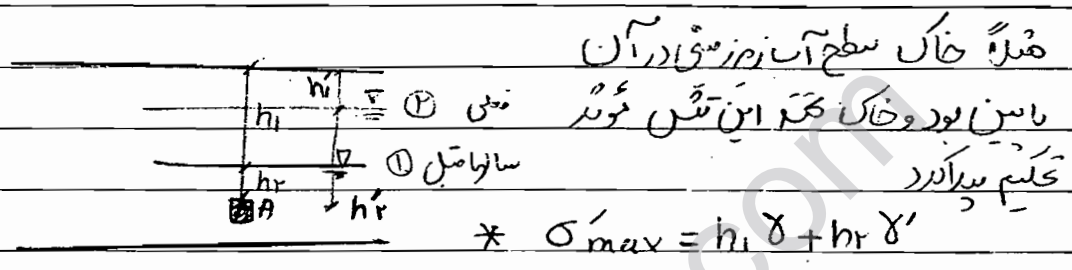 مثلاً خاک سطح آب زیرزمینی در آن
پایین بود و خاک تحت این تنش مؤثر
تحکیم پیدا کرد
h'₁
h₁
▽ ② فعلی
▽ ① سالها قبل
h₂
A
h'₂
* σ'max = h₁ γ + h₂ γ'
com